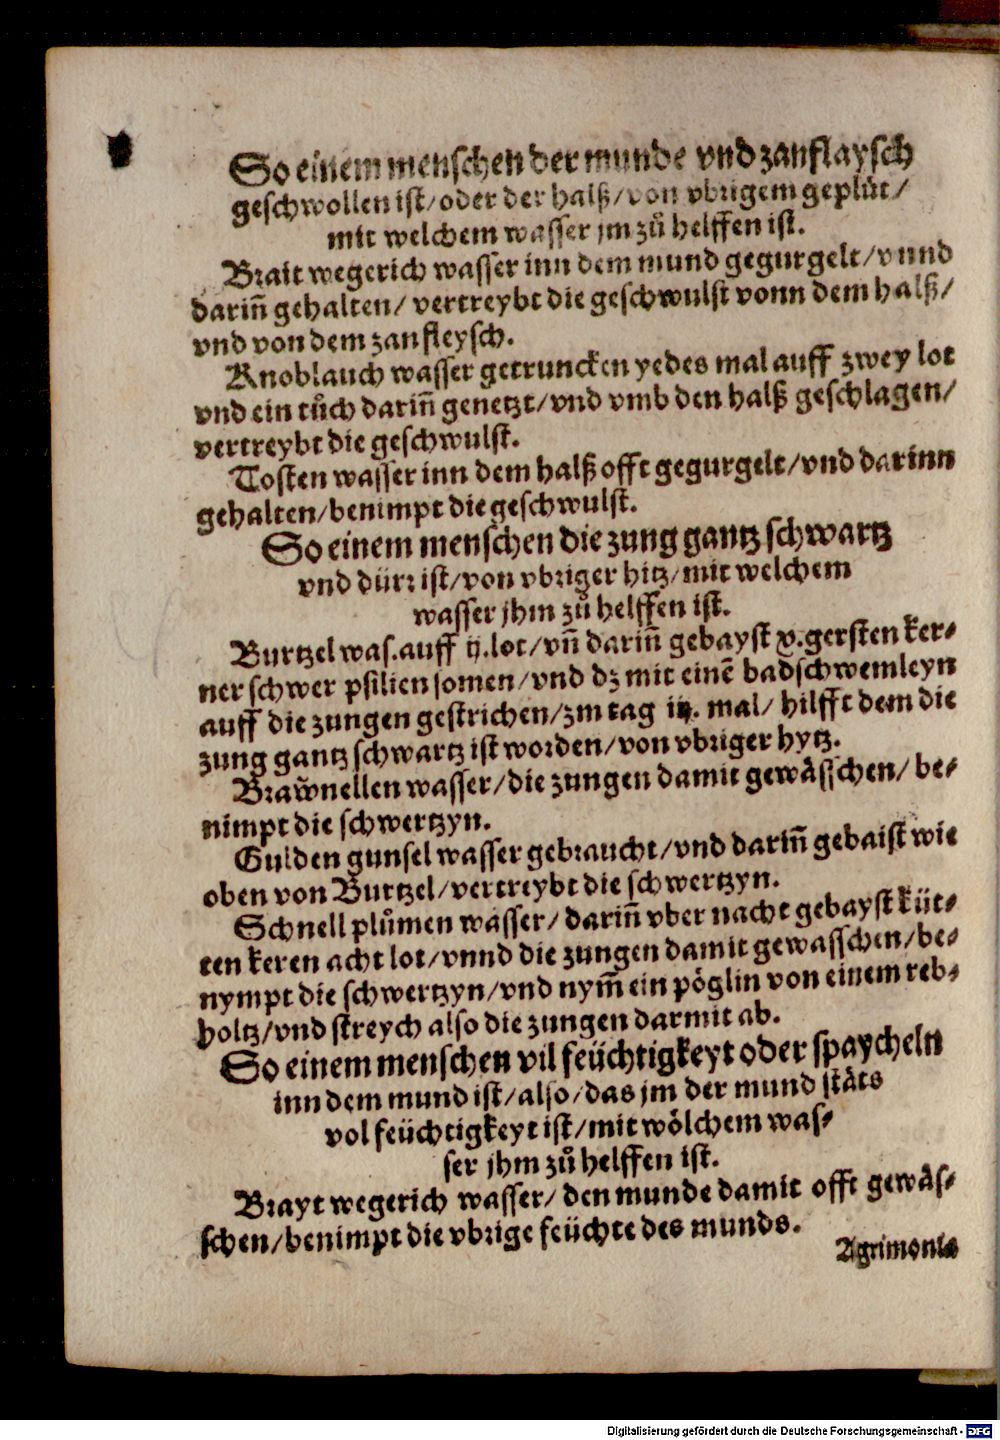 So einem menschen der munde vnd zanflaysch
geschwollen ist/oder der halß/von vbrigem geplüt/
mit welchem wasser jm zů helffen ist.
Brait wegerich wasser inn dem mund gegurgelt/vnnd
dariñ gehalten/ vertreybt die geschwulst vonn dem halß/
vnd von dem zanfleysch.
Knoblauch wasser getruncken yedes mal auff zwey lot
vnd ein tůch dariñ genetzt/vnd vmb den halß geschlagen/
vertreybt die geschwulst.
Tosten wasser inn dem halß offt gegurgelt/vnd darinn
gehalten/benimpt die geschwulst.
So einem menschen die zung gantz schwartz
vnd dürr ist/von vbriger hitz/mit welchem
wasser jhm zů helffen ist.
Burtzel was.auff ij.lot/vñ dariñ gebayst x.gersten ker⸗
ner schwer psilien somen/vnd dz mit einẽ badschwemleyn
auff die zungen gestrichen/zm tag iij. mal/ hilfft dem die
zung gantz schwartz ist worden/von vbriger hytz.
Braw̃nellen wasser/die zungen damit gewåsschen/ be⸗
nimpt die schwertzyn.
Gulden gunsel wasser gebraucht/vnd dariñ gebaist wie
oben von Burtzel/vertreybt die schwertzyn.
Schnell plůmen wasser/ dariñ vber nacht gebayst küt⸗
ten keren acht lot/vnnd die zungen damit gewasschen/be⸗
nympt die schwertzyn/vnd nym̃ ein pöglin von einem reb⸗
holtz/vnd streych also die zungen darmit ab.
So einem menschen vil feüchtigkeyt oder spaycheln
inn dem mund ist/also/das jm der mund stäts
vol feüchtigkeyt ist/mit wölchem was⸗
ser jhm zů helffen ist.
Brayt wegerich wasser/ den munde damit offt gewäs⸗
schen/benimpt die vbrige feüchte des munds.
Agrimonia
Digitalisierung gefördert durch die Deutsche Forschungsgemeinschaft - DFG